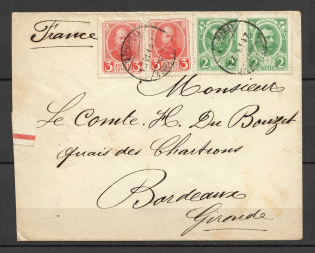 France
3 3 2 2
Monsieur
Le Comte. H. Du Bouzet
quais des Chartrons
Bordeaux
Gironde